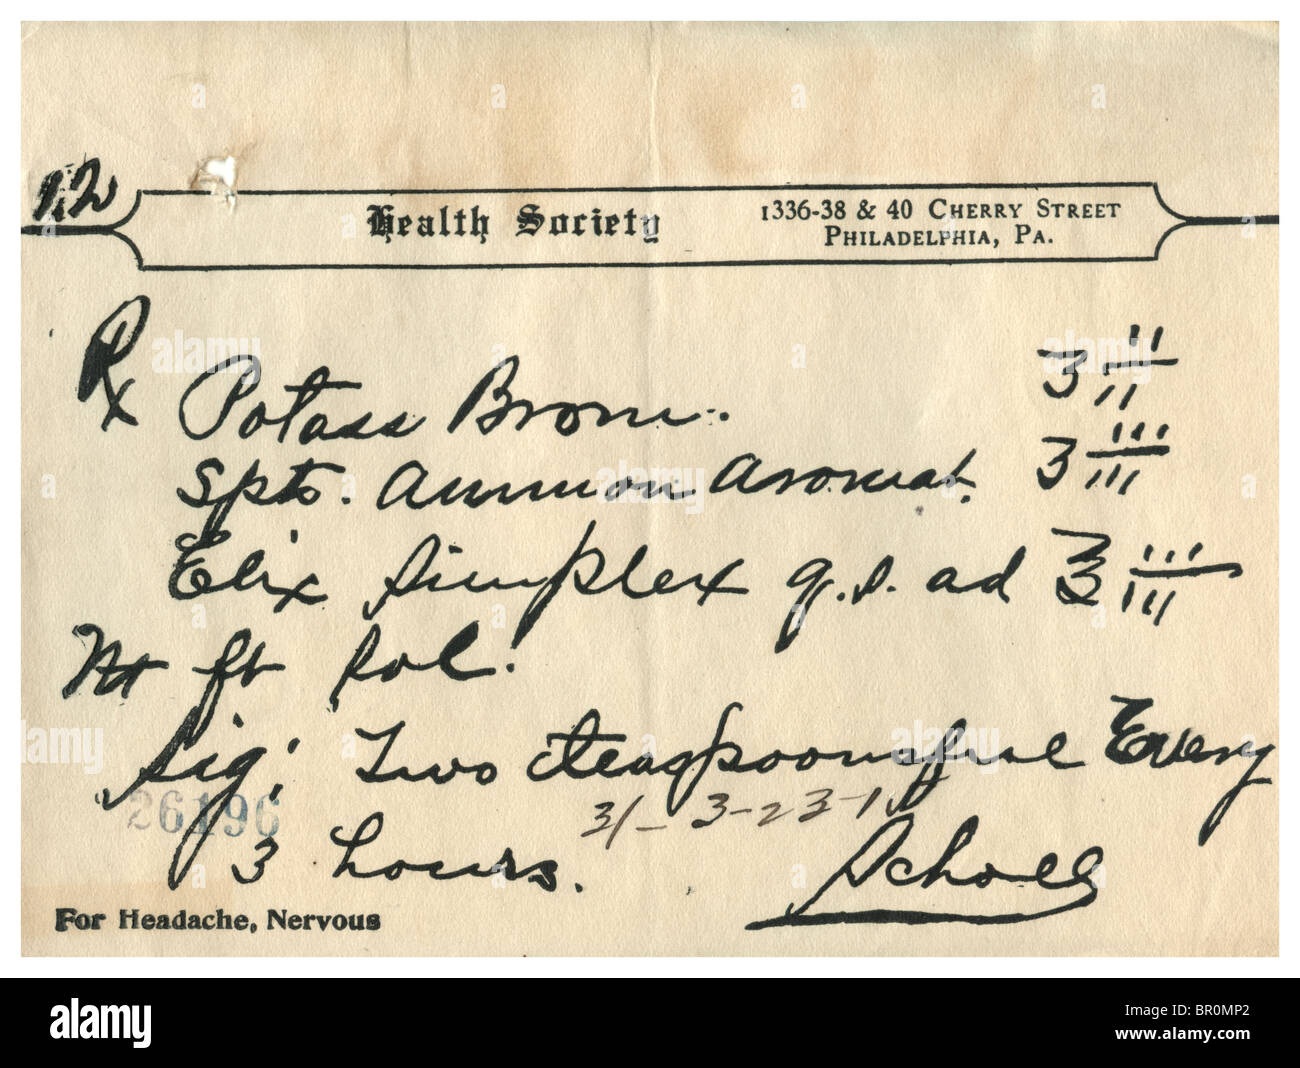 12
Health Society 1336-38 & 40 Cherry Street
Philadelphia, Pa.
Rx Potass Brom. ʒ ii/ii
Spts. Ammon Aromat. ʒ iii/iii
Elix Simplex q.s. ad ℥ iii/iii
M ft Sol.
Sig: Two teaspoonsful Every
26196
3 hours.
Scholl
For Headache, Nervous
alamy
Image ID: BR0MP2
www.alamy.com